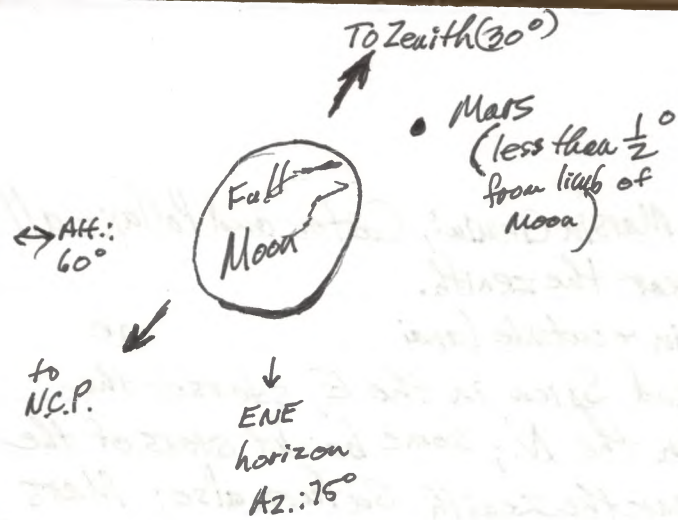 To Zenith (30°)
Mars
(less than 1/2°
from limb of
Moon)
Full
Moon
↔ Alt.:
60°
to
N.C.P.
↓
ENE
horizon
Az.: 75°